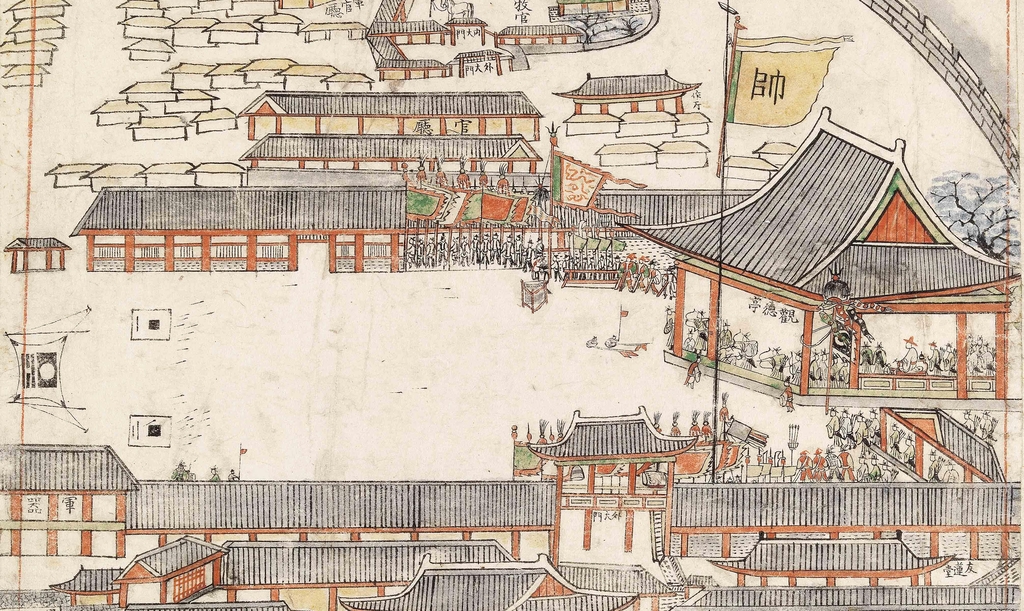 牧官
軍官廳
內大門
外大門
帥
官廳
觀德亭
軍器
外大門
友蓮堂